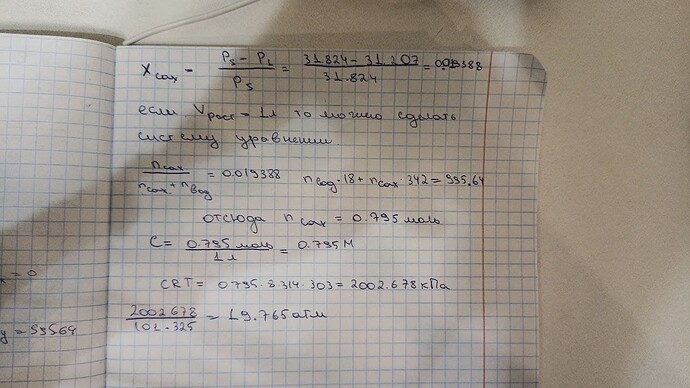 X сах = (P_S - P_L) / P_S = (31.824 - 31.207) / 31.824 = 0.019388
если V раст = 1л то можно сделать
систему уравнении.
n сах / (n сах + n вод) = 0.019388 n вод · 18 + n сах · 342 = 995.64
отсюда n сах = 0.795 моль
C = 0.795 моль / 1 л = 0.795 M
CRT = 0.795 · 8.314 · 303 = 2002.678 кПа
2002.678 / 101.325 = 19.765 атм
x = 0
y = 99564